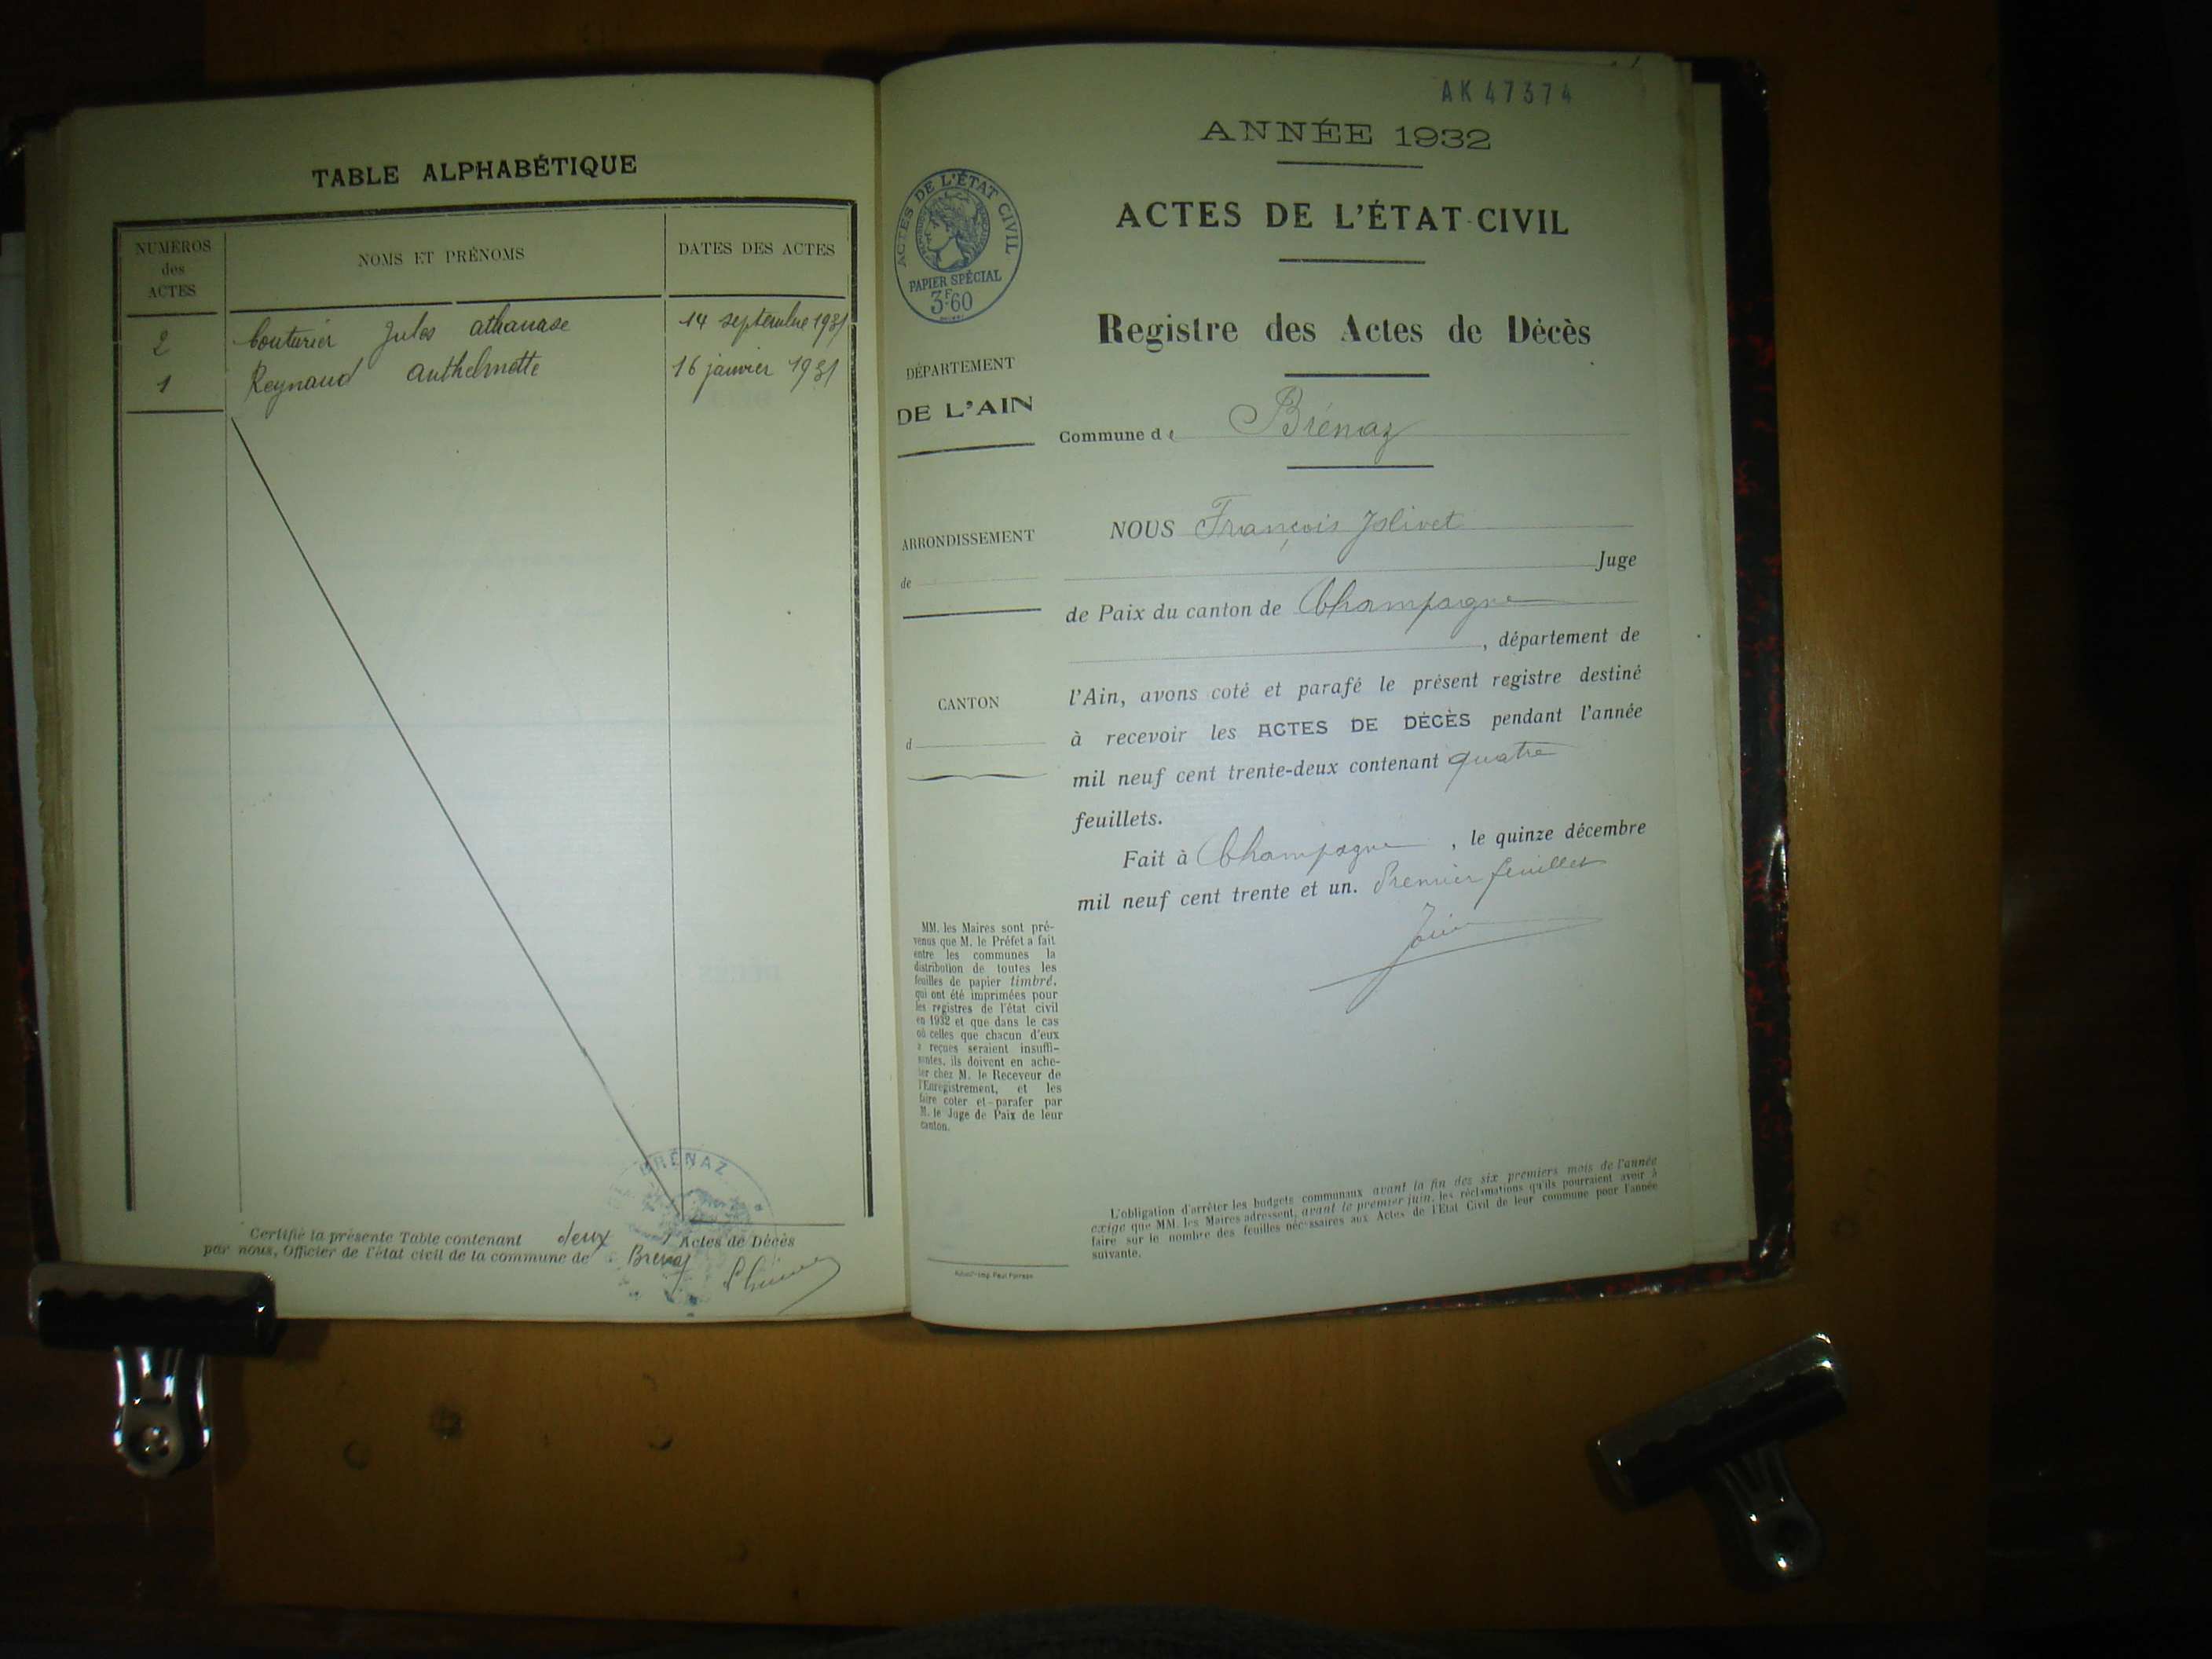 TABLE ALPHABÉTIQUE
NUMÉROS
des
ACTES
NOMS ET PRÉNOMS
DATES DES ACTES
2 Couturier Jules athanase 14 septembre 1931
1 Reynaud Anthelmette 16 janvier 1931
BRÉNAZ
Certifié la présente Table contenant deux Actes de Décès
par nous, Officier de l'état civil de la commune de Brénaz
AK 47374
ANNÉE 1932
ACTES DE L'ÉTAT CIVIL
PAPIER SPÉCIAL
3F60
ACTES DE L'ÉTAT-CIVIL
Registre des Actes de Décès
DÉPARTEMENT
DE L'AIN
Commune de Brénaz
ARRONDISSEMENT
de
NOUS François Jolivet
Juge
de Paix du canton de Champagne
, département de
CANTON
d
l'Ain, avons coté et parafé le présent registre destiné
à recevoir les ACTES DE DÉCÈS pendant l'année
mil neuf cent trente-deux contenant quatre
feuillets.
Fait à Champagne , le quinze décembre
mil neuf cent trente et un. Premier feuillet
MM. les Maires sont pré-
venus que M. le Préfet a fait
entre les communes la
distribution de toutes les
feuilles de papier timbré,
qui ont été imprimées pour
les registres de l'état civil
en 1932 et que dans le cas
où celles que chacun d'eux
a reçues seraient insuffi-
santes, ils doivent en ache-
ter chez M. le Receveur de
l'Enregistrement, et les
faire coter et parafer par
M. le Juge de Paix de leur
canton.
L'obligation d'arrêter les budgets communaux avant la fin des six premiers mois de l'année
exige que MM. les Maires adressent, avant le premier juin, les réclamations qu'ils pourraient avoir à
faire sur le nombre des feuilles nécessaires aux Actes de l'Etat Civil de leur commune pour l'année
suivante.